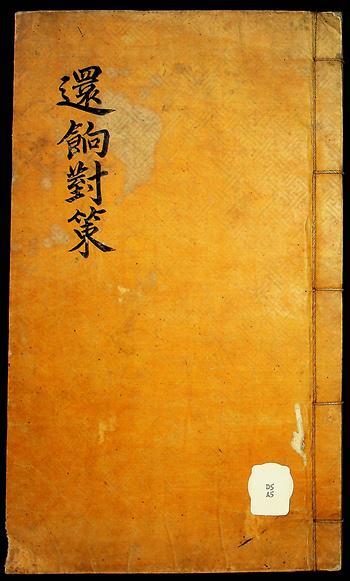 還餉對策
DS
A5